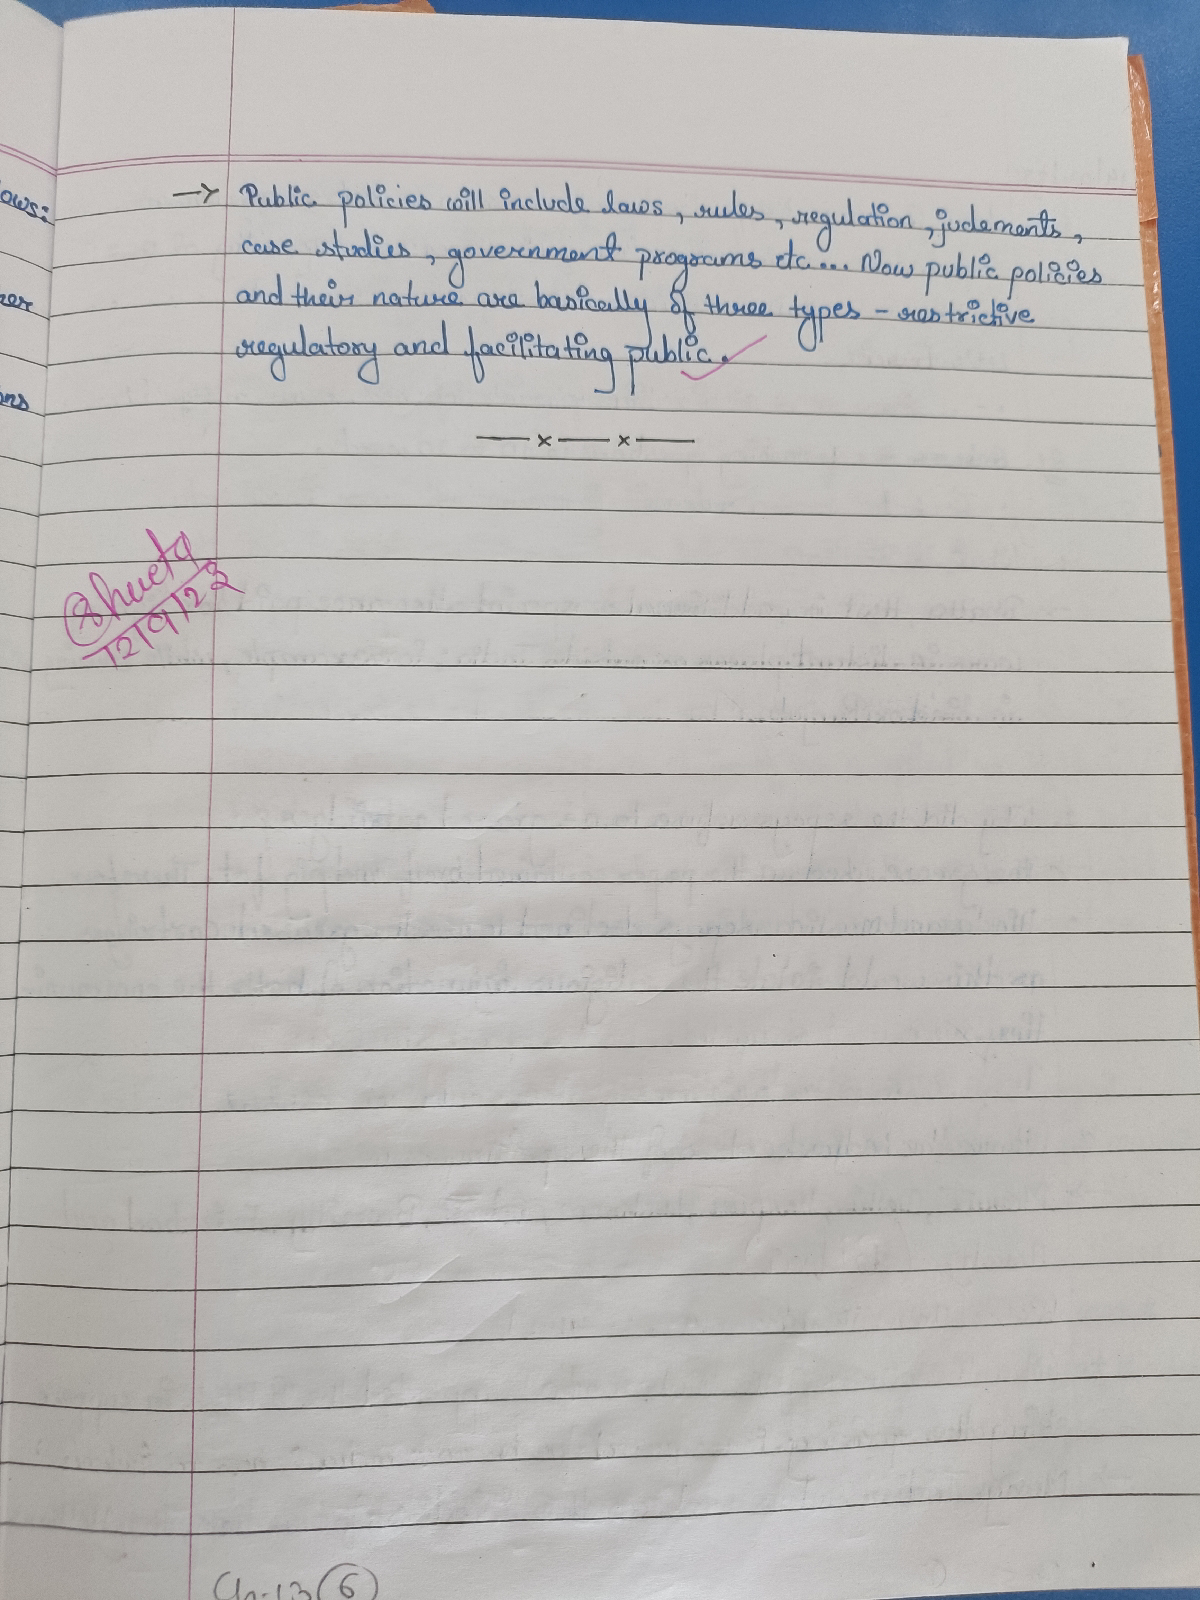 ows:
→ Public policies will include laws, rules, regulation, judements,
case studies, government programs etc... Now public policies
and their nature are basically of three types - restrictive
regulatory and facilitating public.
—x—x—
Shweta
12/9/23
Ch-13 6